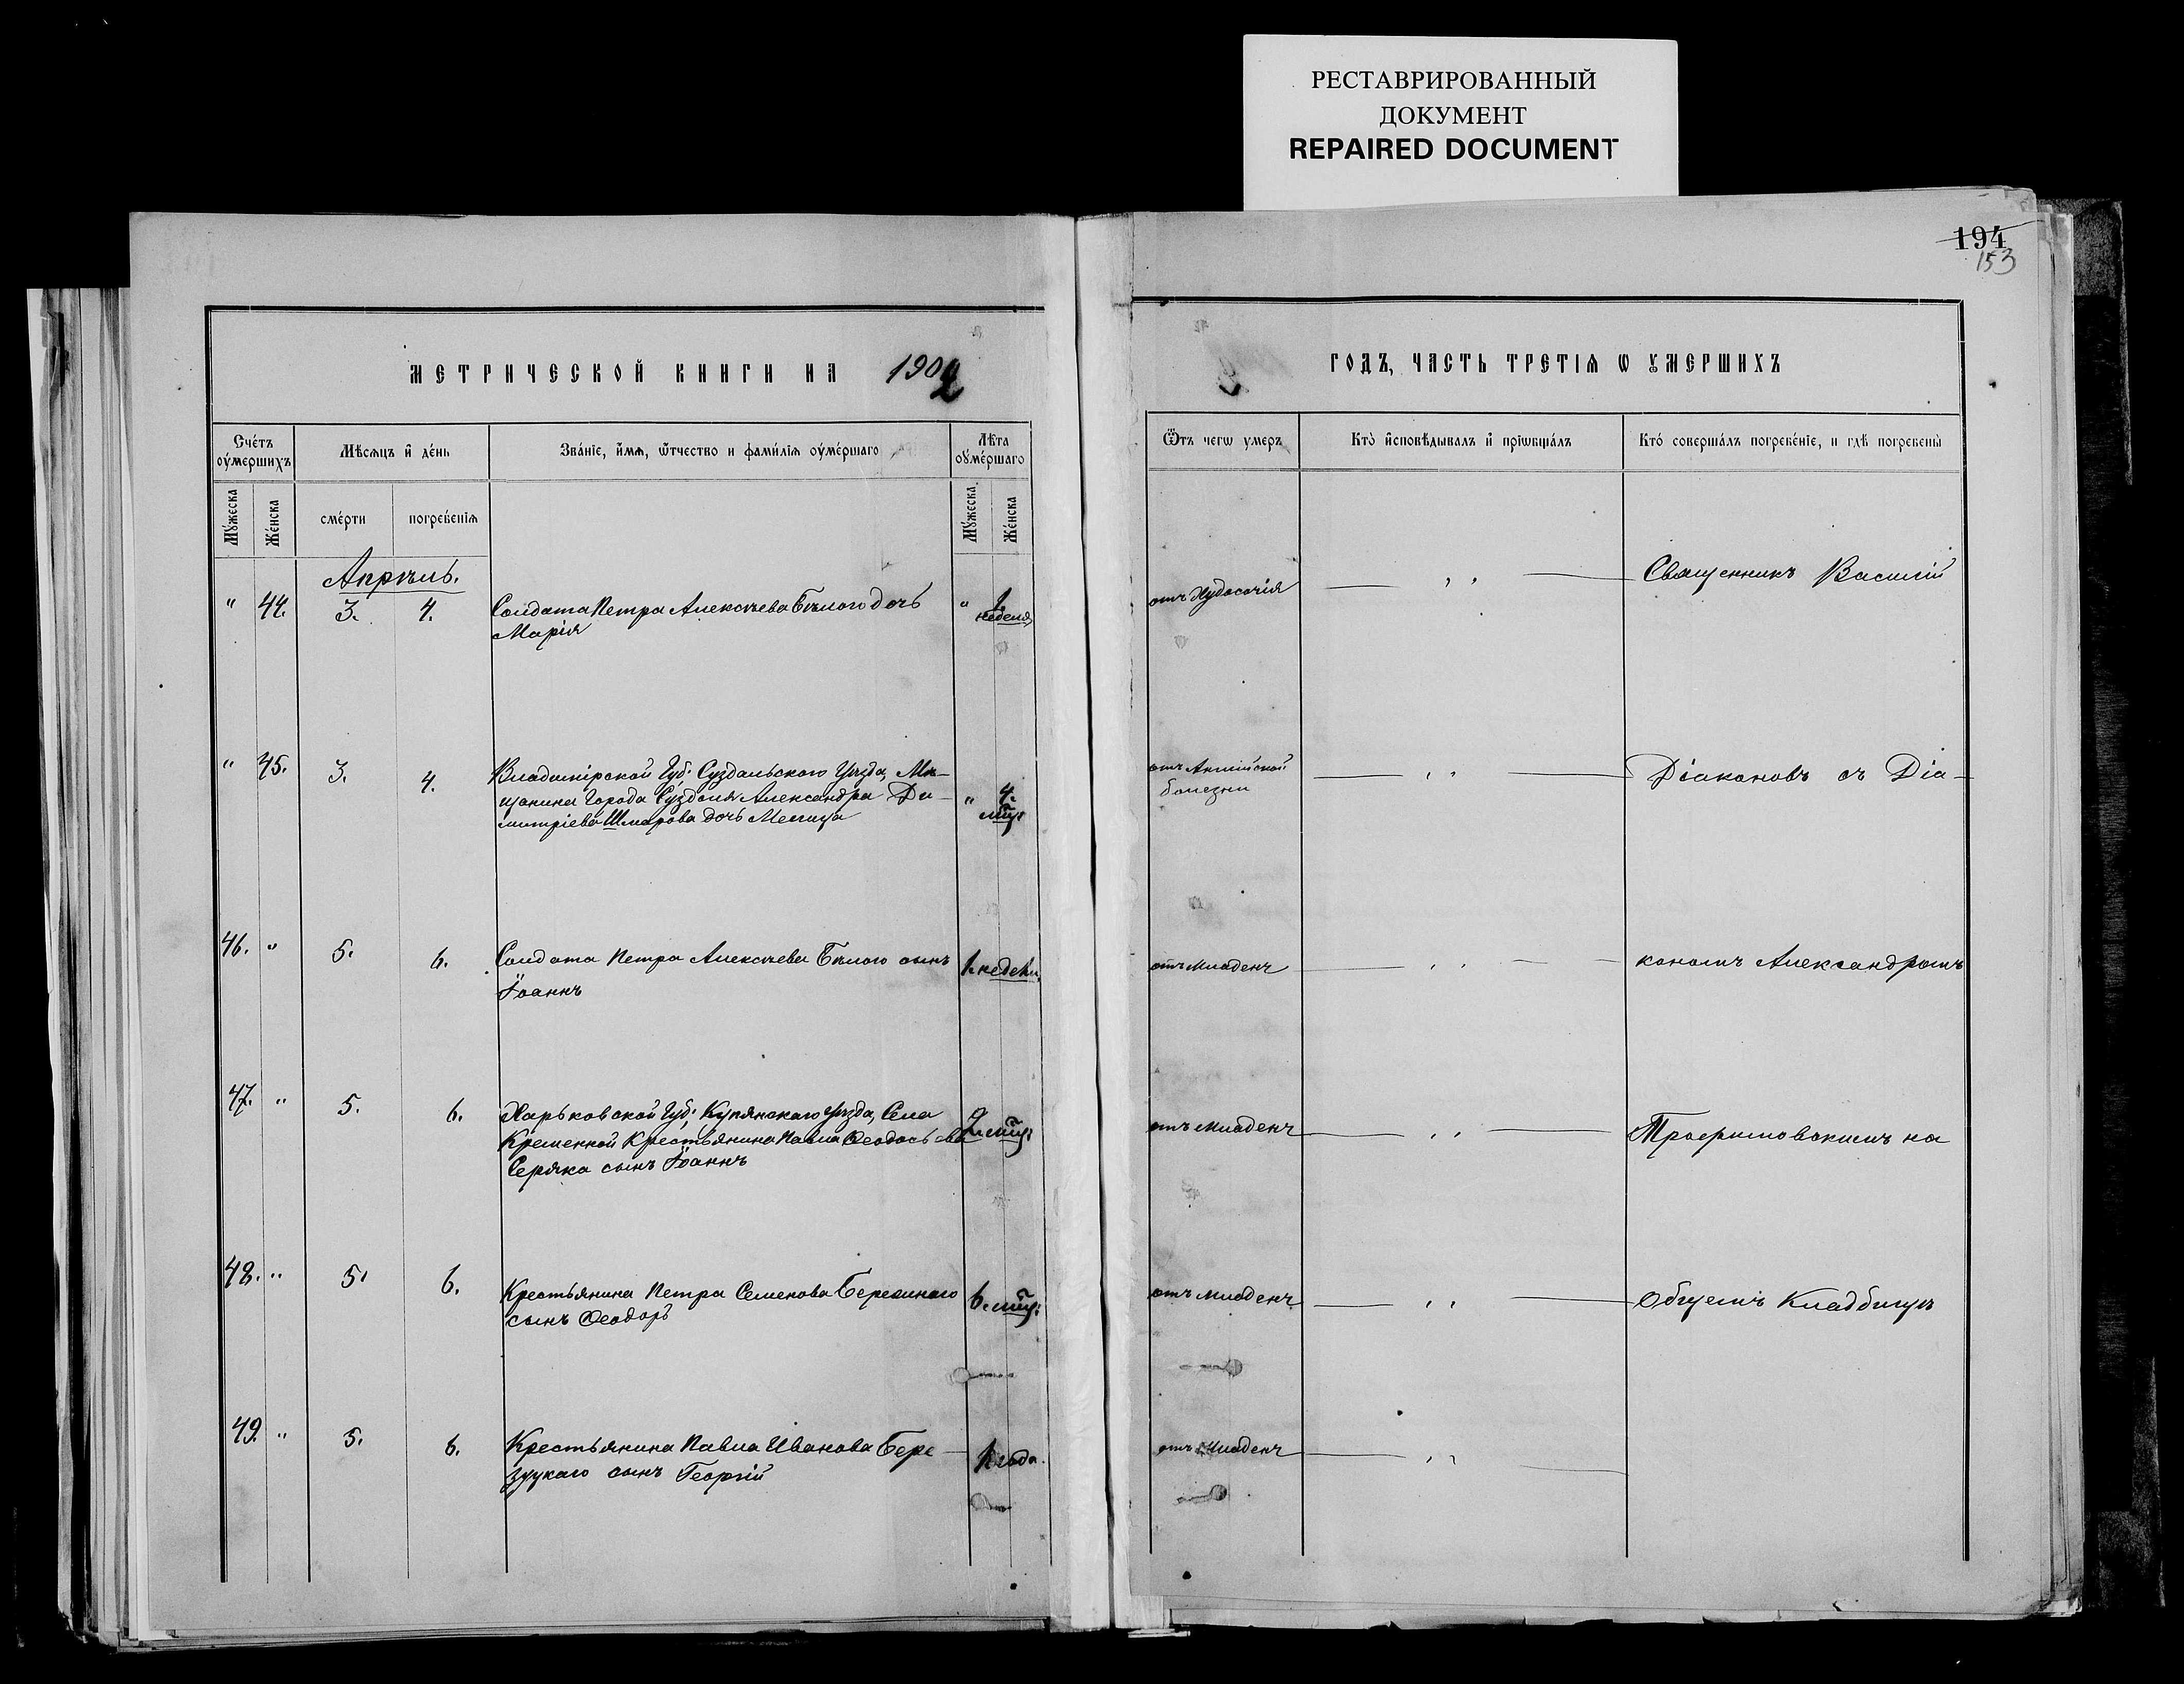 РЕСТАВРИРОВАННЫЙ
ДОКУМЕНТ
REPAIRED DOCUMENT
194
153
МЕТРИЧЕСКОЙ КНИГИ НА 1902
ГОДЪ, ЧАСТЬ ТРЕТІѦ Ѡ ОУМЕРШИХЪ
Сче́тъ оу́мершихъ
Мѣсѧцъ и҆ де́нь
Зва́нїе, и҆́мѧ, ѿтчество и фами́лїѧ оу҆ме́ршаго
Лѣта оу҆ме́ршаго
Ѿтъ чегѡ умеръ
Кто̀ и҆сповѣдывалъ и҆ прїѡбща́лъ
Кто́ соверша́лъ погребе́нїе, и гдѣ погребены̀
Му́жеска
Же́нска
сме́рти
погребе́нїѧ
Му́жеска
Же́нска
Апрѣль.
" 44. 3. 4. Солдата Петра Алексѣева Бѣлого дочь
Марія
" 1. неделя
отъ Худосочія
— " —
Священникъ Василій
" 45. 3. 4. Владимірской Губ: Суздальского Уѣзда, Мѣ-
щанина Города Суздаля Александра Ди-
митріева Шмарова дочь
" 4. мц:
отъ Англійской
болезни
— " —
Діаконовъ съ Діа-
46. " 5. 6. Солдата Петра Алексѣева Бѣлого сынъ
Іоаннъ
1. недели
отъ младенч
— " —
кономъ Александромъ
47. " 5. 6. Харьковской Губ; Купянскаго Уѣзда, Села
Кременной Крестьянина Павла Ѳеодосьева
Серяка сынъ Іоаннъ
2. мц:
отъ младенч
— " —
Трофимовскимъ на
48. " 5. 6. Крестьянина Петра Семенова
сынъ Ѳеодоръ
6. мц:
отъ младенч
— " —
Общемъ Кладбищѣ
49. " 5. 6. Крестьянина Павла Иванова Бере-
зуцкаго сынъ Георгій
1 года
отъ младенч
— " —